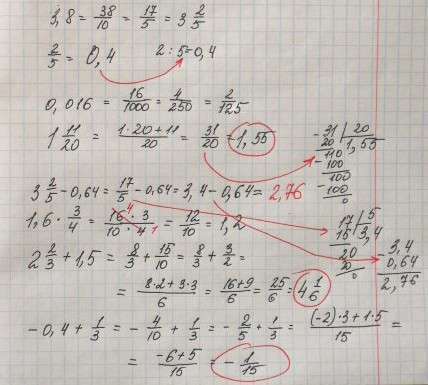 3,8 = 38/10 = 17/5 = 3 2/5
2/5 = 0,4   2 : 5 = 0,4
0,016 = 16/1000 = 4/250 = 2/125
1 11/20 = (1·20+11)/20 = 31/20 = 1,55
31 | 20
20 | 1,55
110
- 100
- 100
100
0
3 2/5 - 0,64 = 17/5 - 0,64 = 3,4 - 0,64 = 2,76
1,6 · 3/4 = (16·3)/(10·4) = 12/10 = 1,2
4 1
17 | 5
15 | 3,4
20
20
0
2 2/3 + 1,5 = 8/3 + 15/10 = 8/3 + 3/2 =
- 3,4
0,64
2,76
= (8·2+3·3)/6 = (16+9)/6 = 25/6 = 4 1/6
- 0,4 + 1/3 = - 4/10 + 1/3 = - 2/5 + 1/3 = ((-2)·3+1·5)/15 =
= (-6+5)/15 = - 1/15